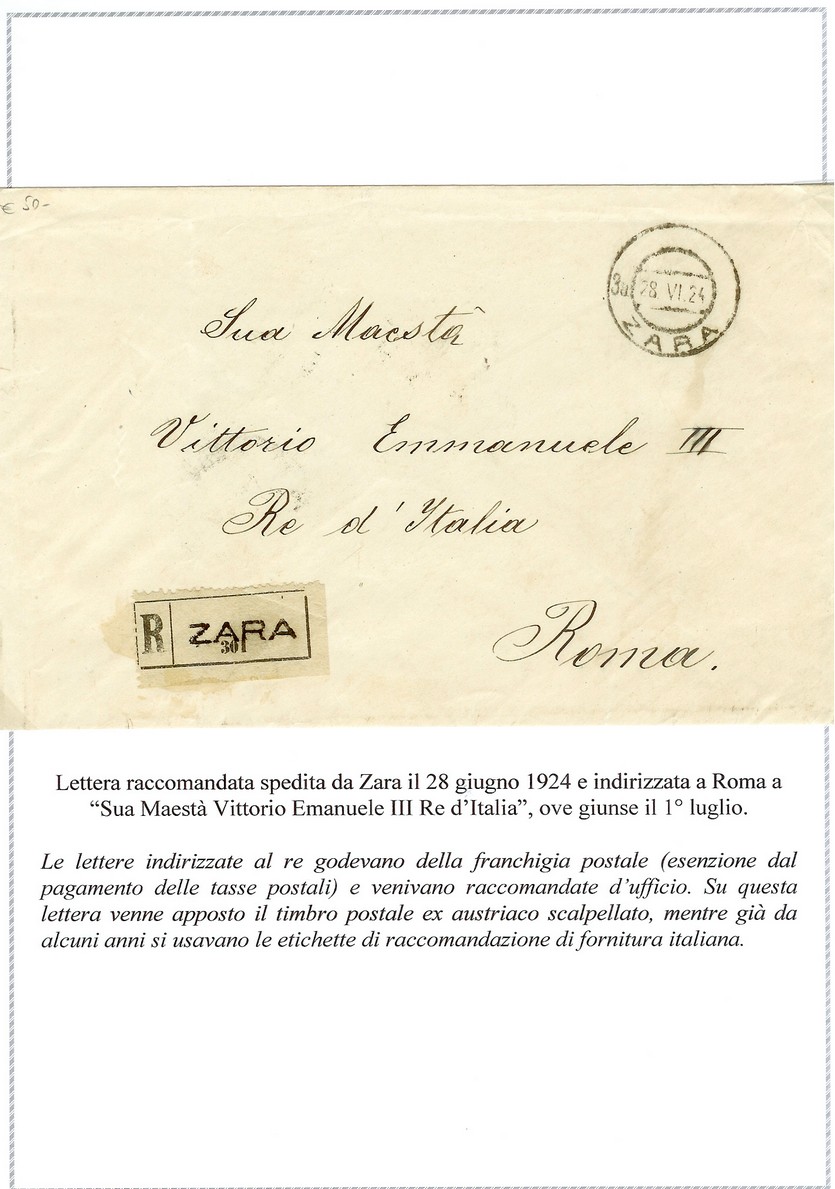 € 50-
3a 28 VI.24
ZARA
Sua Maestà
Vittorio Emmanuele III
Re d'Italia
R ZARA
301
Roma.
Lettera raccomandata spedita da Zara il 28 giugno 1924 e indirizzata a Roma a
“Sua Maestà Vittorio Emanuele III Re d’Italia”, ove giunse il 1° luglio.
Le lettere indirizzate al re godevano della franchigia postale (esenzione dal
pagamento delle tasse postali) e venivano raccomandate d’ufficio. Su questa
lettera venne apposto il timbro postale ex austriaco scalpellato, mentre già da
alcuni anni si usavano le etichette di raccomandazione di fornitura italiana.